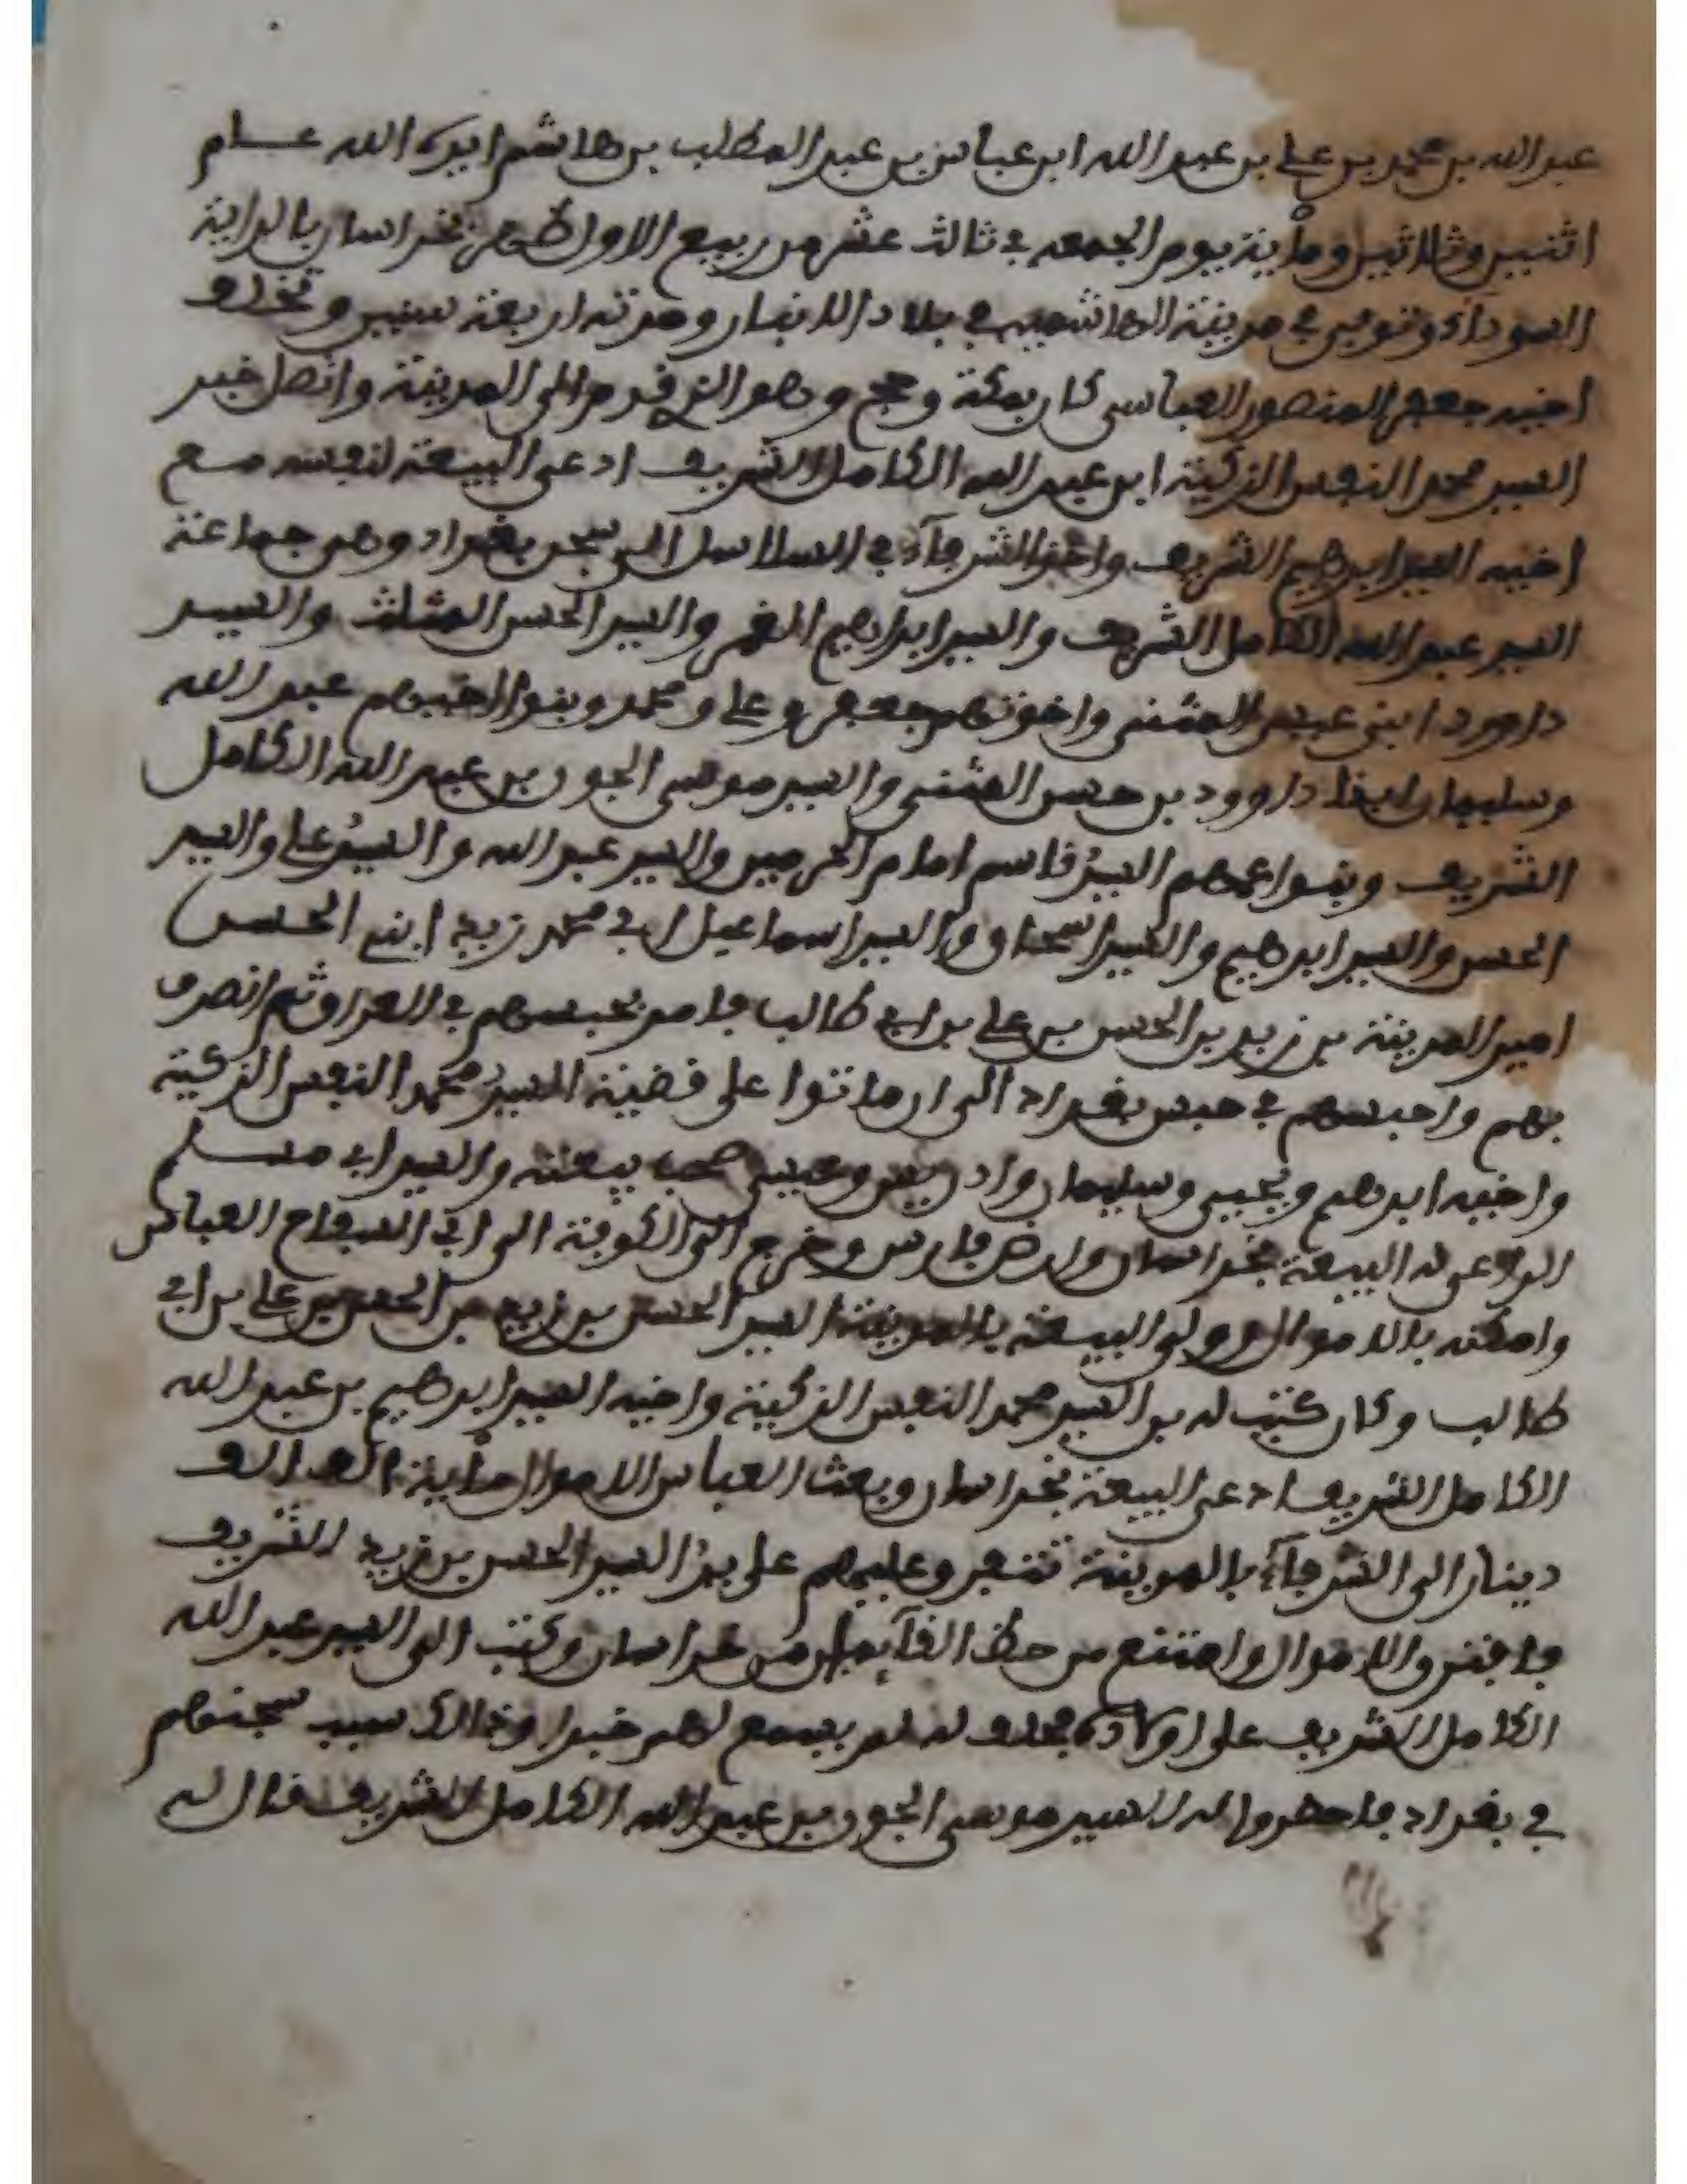 عبد الله بن محمد بن علي بن عبد الله ابن عباس بن عبد المطلب بن هاشم ايده الله عام
اثنين وثلاثين ومأية يوم الجمعه في ثالث عشر من ربيع الاول ظهر بخراسان بالراية
السوداء وتوفى في مدينة الهاشميه في بلاد الانبار ومدته اربعة سنين وتخلف
اخيه جعفر المنصور العباسى كان بمكة وحج وهو الذي قدم الى المدينة واتصل خبر
السيد محمد النفس الزكية ابن عبد الله الكامل الشريف ادعى البيعة لنفسه مع
اخيه السيد ابرهيم الشريف واخذ الشرفاء في السلاسل الى سجن بغداد وهم جماعة
السيد عبد الله الكامل الشريف والسيد ابراهيم الغمر والسيد الحسن المثلث والسيد
داوود ابني المثنى واخوتهم جعفر وعلي ومحمد وبنوا اخيهم عبد الله
وسليمان ابنا داوود بن حسن المثنى والسيد موسى الجون بن عبد الله الكامل
الشريف وبنوا عمهم السيد قاسم امام الحرمين والسيد عبد الله والسيد علي والسيد
الحسن والسيد ابرهيم والسيد اسحاق والسيد اسماعيل ابي محمد زيد ابنه الحسن
امير المدينة بن زيد بن الحسن بن علي بن ابي طالب فامر بحبسهم في العراق ثم انصرف
بهم واحبسهم في حبس بغداد الى ان ماتوا على قضية السيد محمد النفس الزكية
واخيه ابرهم ويحيى وسليمان وادريس وعيسى بيعته والسيد ابي مسلم
الذي ادعى له البيعة بخراسان وارض فارس وخرج الى الكوفة الى ابي السفاح العباس
وامكنه بالاموال وولى البيعة بالمدينة السيد الحسن بن زيد بن الحسن بن علي بن ابي
طالب وكان كتب له بن السيد محمد النفس الزكية واخيه السيد ابرهيم بن عبد الله
الكامل الشريف ادعى البيعة بخراسان وبعث العباس الاموال مأية الف الف
دينار الى الشرفاء بالمدينة تتفرو عليهم على يد السيد الحسن بن زيد الشريف
فاقبضوا الاموال وامتنع من حظ من خراسان وكتب الى السيد عبد الله
الكامل الشريف على اولاده فحلف له لم يسمع لهم خبرا وذالك سبب سجنهم
في بغداد فاحضروا له السيد موسى الجون بن عبد الله الكامل الشريف فقال له